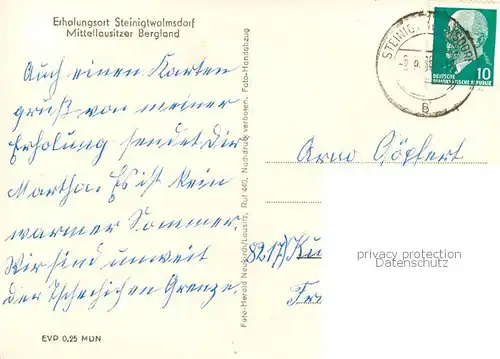 Erholungsort Steinigtwolmsdorf
Mittellausitzer Bergland
Auch einen Karten
gruß von meiner
Erholung sendet Dir
Martha. Es ist kein
warmer Sommer.
Wir sind unweit
der Tschechichen Grenze.
EVP 0,25 MDN
Foto-Herold Neukirch/Lausitz, Ruf 440, Nachdruck verboten. Foto-Handabzug
STEINIGT
B
DEUTSCHE
DEMOKRATISCHE REPUBLIK
10
Arno Göpfert
8217)
privacy protection
Datenschutz